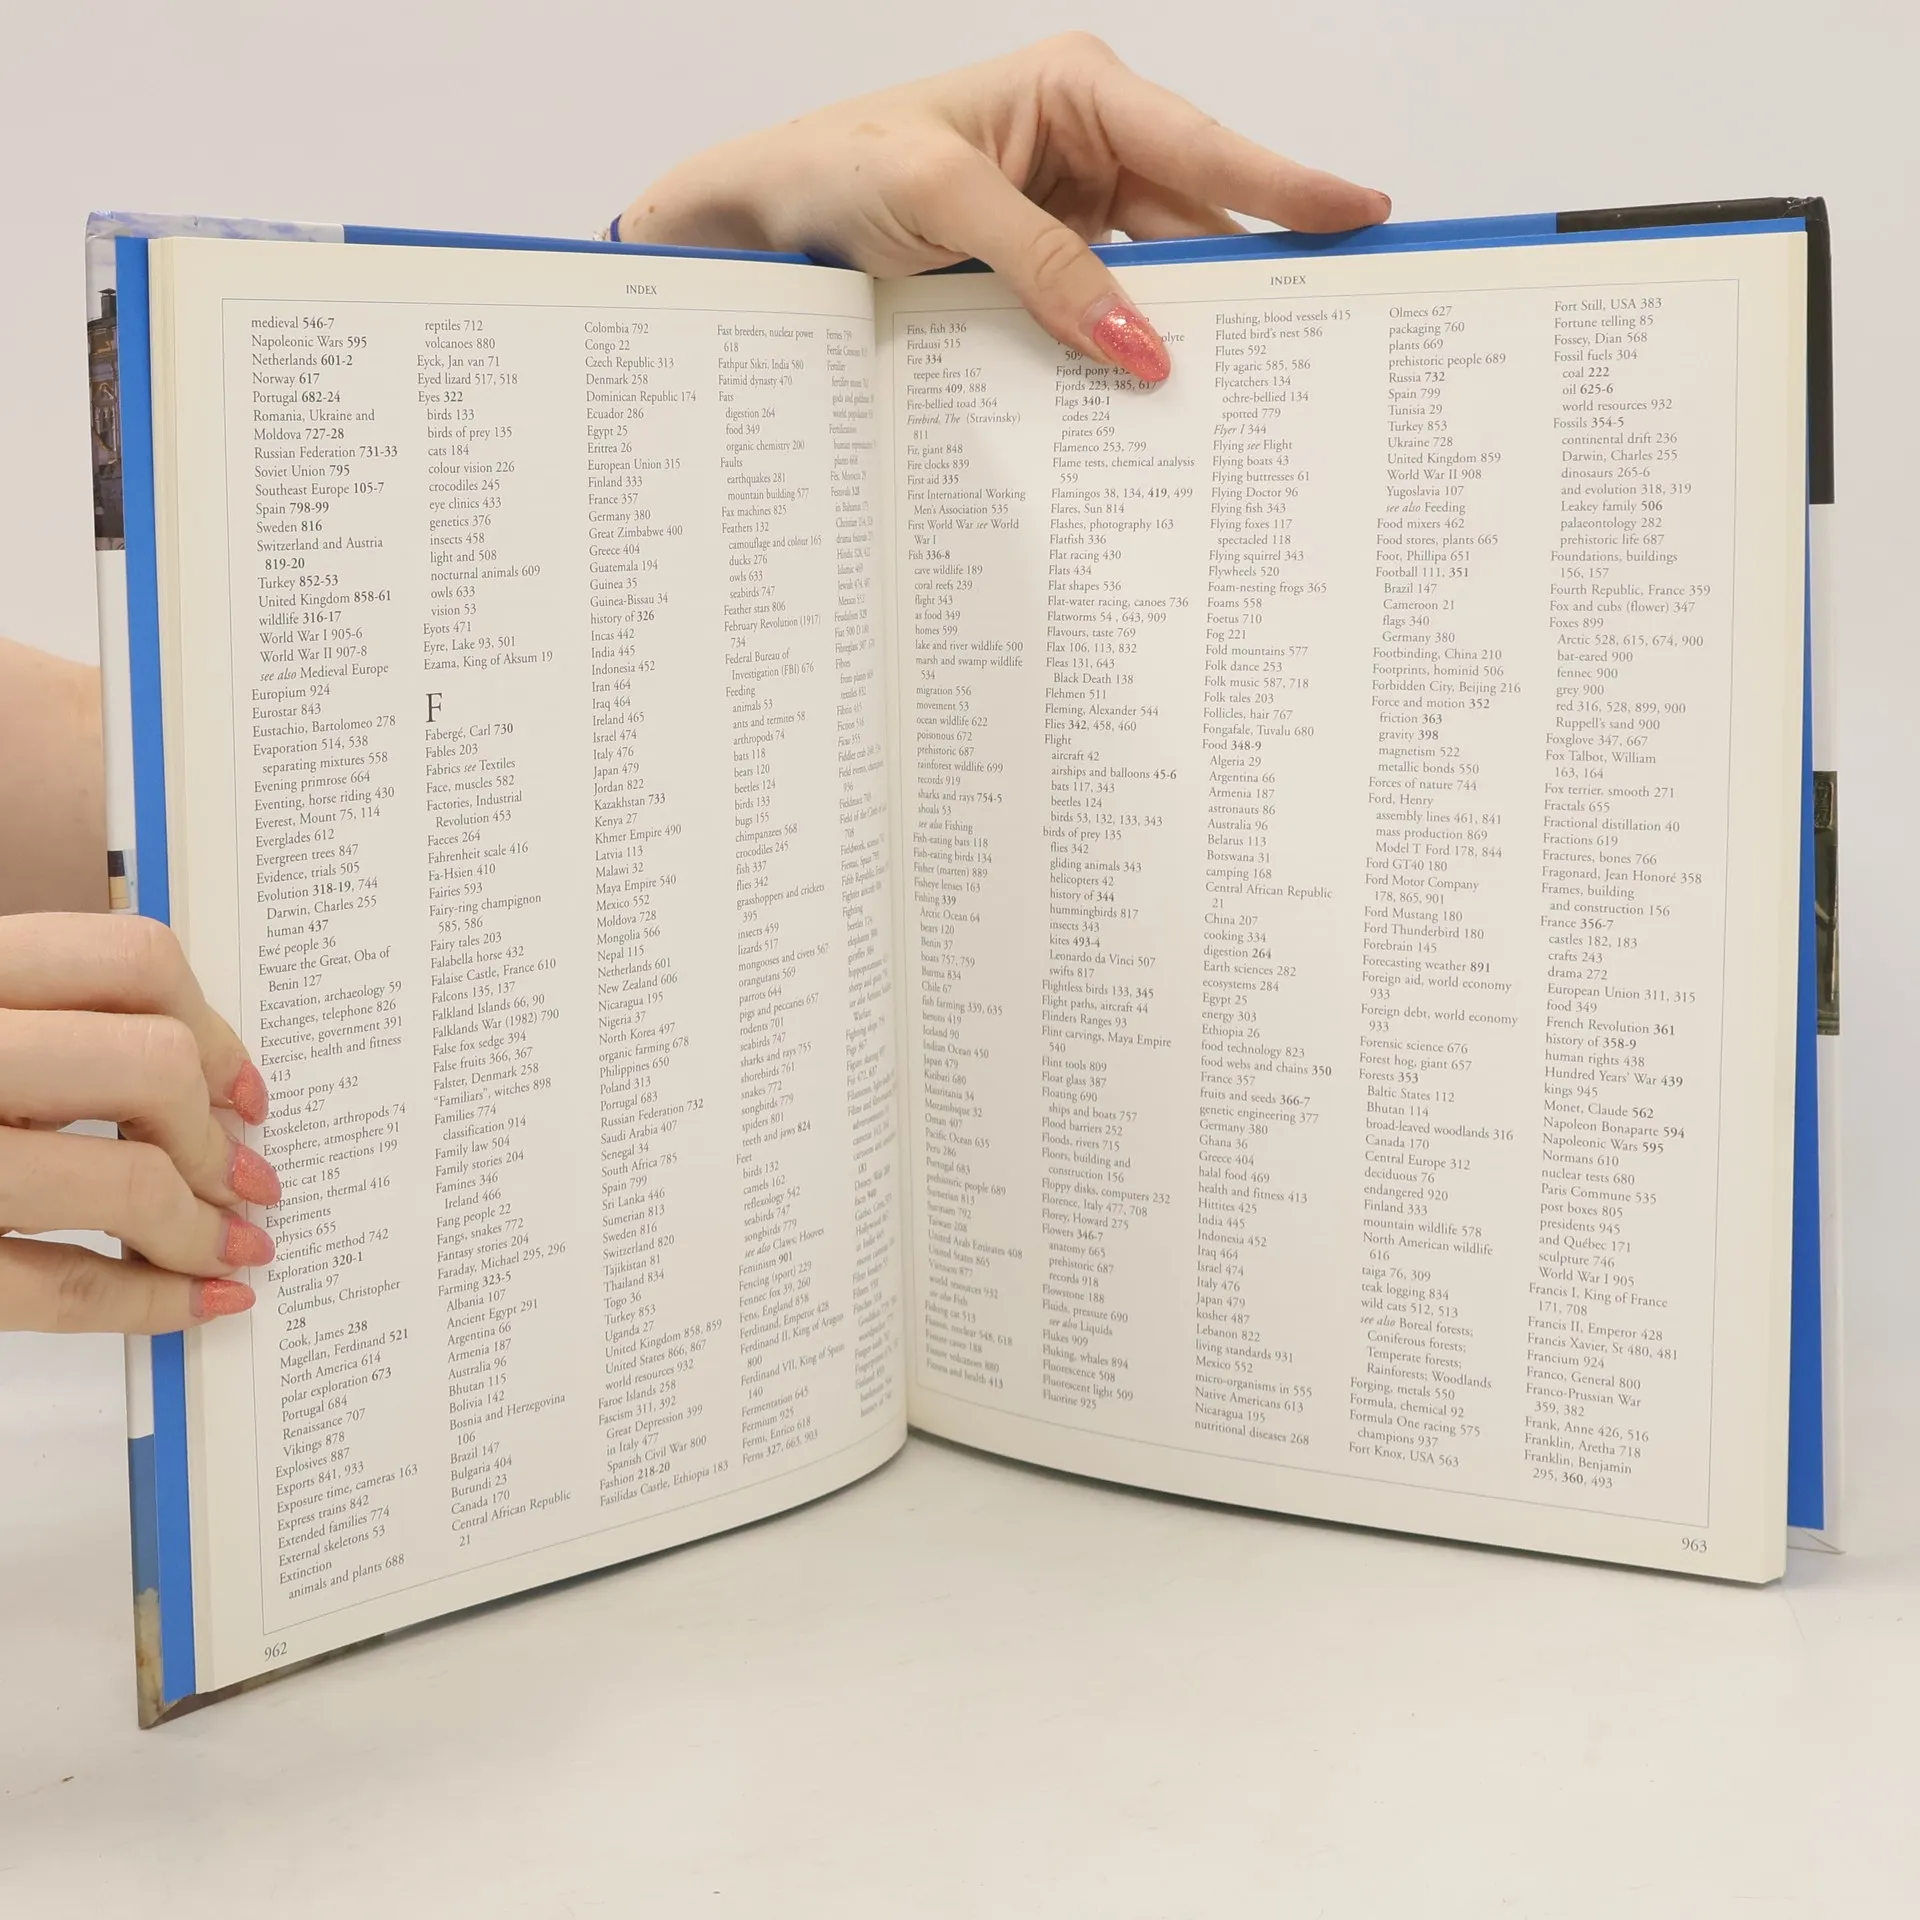 INDEX
medieval 546-7
Napoleonic Wars 595
Netherlands 601-2
Norway 617
Portugal 682-24
Romania, Ukraine and
Moldova 727-28
Russian Federation 731-33
Soviet Union 795
Southeast Europe 105-7
Spain 798-99
Sweden 816
Switzerland and Austria
819-20
Turkey 852-53
United Kingdom 858-61
wildlife 316-17
World War I 905-6
World War II 907-8
see also Medieval Europe
Europium 924
Eurostar 843
Eustachio, Bartolomeo 278
Evaporation 514, 538
separating mixtures 558
Evening primrose 664
Eventing, horse riding 430
Everest, Mount 75, 114
Everglades 612
Evergreen trees 847
Evidence, trials 505
Evolution 318-19, 744
Darwin, Charles 255
human 437
Ewé people 36
Ewuare the Great, Oba of
Benin 127
Excavation, archaeology 59
Exchanges, telephone 826
Executive, government 391
Exercise, health and fitness
413
xmoor pony 432
xodus 427
Exoskeleton, arthropods 74
Exosphere, atmosphere 91
xothermic reactions 199
otic cat 185
pansion, thermal 416
Experiments
physics 655
scientific method 742
Exploration 320-1
Australia 97
Columbus, Christopher
228
Cook, James 238
Magellan, Ferdinand 521
North America 614
polar exploration 673
Portugal 684
Renaissance 707
Vikings 878
Explosives 887
Exports 841, 933
Exposure time, cameras 163
Express trains 842
Extended families 774
External skeletons 53
Extinction
animals and plants 688
reptiles 712
volcanoes 880
Eyck, Jan van 71
Eyed lizard 517, 518
Eyes 322
birds 133
birds of prey 135
cats 184
colour vision 226
crocodiles 245
eye clinics 433
genetics 376
insects 458
light and 508
nocturnal animals 609
owls 633
vision 53
Eyots 471
Eyre, Lake 93, 501
Ezama, King of Aksum 19
F
Fabergé, Carl 730
Fables 203
Fabrics see Textiles
Face, muscles 582
Factories, Industrial
Revolution 453
Faeces 264
Fahrenheit scale 416
Fa-Hsien 410
Fairies 593
Fairy-ring champignon
585, 586
Fairy tales 203
Falabella horse 432
Falaise Castle, France 610
Falcons 135, 137
Falkland Islands 66, 90
Falklands War (1982) 790
False fox sedge 394
False fruits 366, 367
Falster, Denmark 258
"Familiars", witches 898
Families 774
classification 914
Family law 504
Family stories 204
Famines 346
Ireland 466
Fang people 22
Fangs, snakes 772
Fantasy stories 204
Faraday, Michael 295, 296
Farming 323-5
Albania 107
Ancient Egypt 291
Argentina 66
Armenia 187
Australia 96
Bhutan 115
Bolivia 142
Bosnia and Herzegovina
106
Brazil 147
Bulgaria 404
Burundi 23
Canada 170
Central African Republic
21
Colombia 792
Congo 22
Czech Republic 313
Denmark 258
Dominican Republic 174
Ecuador 286
Egypt 25
Eritrea 26
European Union 315
Finland 333
France 357
Germany 380
Great Zimbabwe 400
Greece 404
Guatemala 194
Guinea 35
Guinea-Bissau 34
history of 326
Incas 442
India 445
Indonesia 452
Iran 464
Iraq 464
Ireland 465
Israel 474
Italy 476
Japan 479
Jordan 822
Kazakhstan 733
Kenya 27
Khmer Empire 490
Latvia 113
Malawi 32
Maya Empire 540
Mexico 552
Moldova 728
Mongolia 566
Nepal 115
Netherlands 601
New Zealand 606
Nicaragua 195
Nigeria 37
North Korea 497
organic farming 678
Philippines 650
Poland 313
Portugal 683
Russian Federation 732
Saudi Arabia 407
Senegal 34
South Africa 785
Spain 799
Sri Lanka 446
Sumerian 813
Sweden 816
Switzerland 820
Tajikistan 81
Thailand 834
Togo 36
Turkey 853
Uganda 27
United Kingdom 858, 859
United States 866, 867
world resources 932
Faroe Islands 258
Fascism 311, 392
Great Depression 399
in Italy 477
Spanish Civil War 800
Fashion 218-20
Fasilidas Castle, Ethiopia 183
Fast breeders, nuclear power
618
Fathpur Sikri, India 580
Fatimid dynasty 470
Fats
digestion 264
food 349
organic chemistry 200
Faults
earthquakes 281
mountain building 577
Fax machines 825
Feathers 132
camouflage and colour 165
ducks 276
owls 633
seabirds 747
Feather stars 806
February Revolution (1917)
734
Federal Bureau of
Investigation (FBI) 676
Feeding
animals 53
ants and termites 58
arthropods 74
bats 118
bears 120
beetles 124
birds 133
bugs 155
chimpanzees 568
crocodiles 245
fish 337
flies 342
grasshoppers and crickets
395
insects 459
lizards 517
mongooses and civets 567
orangutans 569
parrots 644
pigs and peccaries 657
rodents 701
seabirds 747
sharks and rays 755
shorebirds 761
snakes 772
songbirds 779
spiders 801
teeth and jaws 824
Feet
birds 132
camels 162
reflexology 542
seabirds 747
songbirds 779
see also Claws; Hooves
Feminism 901
Fencing (sport) 229
Fennec fox 39, 260
Fens, England 858
Ferdinand, Emperor 428
Ferdinand II, King of Aragon
800
Ferdinand VII, King of Spain
140
Fermentation 645
Fermium 925
Fermi, Enrico 618
Ferns 327, 663, 903
Ferries 759
Fertility
Fertilization
962
INDEX
Fins, fish 336
Firdausi 515
Fire 334
teepee fires 167
Firearms 409, 888
Fire-bellied toad 364
Firebird, The (Stravinsky)
811
Fit, giant 848
Fire clocks 839
First aid 335
First International Working
Men's Association 535
First World War see World
War I
Fish 336-8
cave wildlife 189
coral reefs 239
flight 343
as food 349
homes 599
lake and river wildlife 500
marsh and swamp wildlife
534
migration 556
movement 53
ocean wildlife 622
poisonous 672
prehistoric 687
rainforest wildlife 699
records 919
sharks and rays 754-5
shoals 53
see also Fishing
Fish-eating bats 118
Fish-eating birds 134
Fisher (marten) 889
Fisheye lenses 163
Fishing 339
Arctic Ocean 64
bears 120
Benin 37
boats 757, 759
Burma 834
Chile 67
fish farming 339, 635
herons 419
Iceland 90
Indian Ocean 450
Japan 479
Kiribati 680
Mauritania 34
Mozambique 32
Oman 407
Pacific Ocean 635
Peru 286
Portugal 683
prehistoric people 689
Sumerian 813
Surinam 792
Taiwan 208
United Arab Emirates 408
United States 865
Vietnam 877
world resources 932
see also Fish
Fishing cat 513
Fission, nuclear 548, 618
Fissure caves 188
Fissure volcanoes 880
Fitness and health 413
olyte
509
Fjord pony 432
Fjords 223, 385, 617
Flags 340-1
codes 224
pirates 659
Flamenco 253, 799
Flame tests, chemical analysis
559
Flamingos 38, 134, 419, 499
Flares, Sun 814
Flashes, photography 163
Flatfish 336
Flat racing 430
Flats 434
Flat shapes 536
Flat-water racing, canoes 736
Flatworms 54 , 643, 909
Flavours, taste 769
Flax 106, 113, 832
Fleas 131, 643
Black Death 138
Flehmen 511
Fleming, Alexander 544
Flies 342, 458, 460
Flight
aircraft 42
airships and balloons 45-6
bats 117, 343
beetles 124
birds 53, 132, 133, 343
birds of prey 135
flies 342
gliding animals 343
helicopters 42
history of 344
hummingbirds 817
insects 343
kites 493-4
Leonardo da Vinci 507
swifts 817
Flightless birds 133, 345
Flight paths, aircraft 44
Flinders Ranges 93
Flint carvings, Maya Empire
540
Flint tools 809
Float glass 387
Floating 690
ships and boats 757
Flood barriers 252
Floods, rivers 715
Floors, building and
construction 156
Floppy disks, computers 232
Florence, Italy 477, 708
Florey, Howard 275
Flowers 346-7
anatomy 665
prehistoric 687
records 918
Flowstone 188
Fluids, pressure 690
see also Liquids
Flukes 909
Fluking, whales 894
Fluorescence 508
Fluorescent light 509
Fluorine 925
Flushing, blood vessels 415
Fluted bird's nest 586
Flutes 592
Fly agaric 585, 586
Flycatchers 134
ochre-bellied 134
spotted 779
Flyer I 344
Flying see Flight
Flying boats 43
Flying buttresses 61
Flying Doctor 96
Flying fish 343
Flying foxes 117
spectacled 118
Flying squirrel 343
Flywheels 520
Foam-nesting frogs 365
Foams 558
Foetus 710
Fog 221
Fold mountains 577
Folk dance 253
Folk music 587, 718
Folk tales 203
Follicles, hair 767
Fongafale, Tuvalu 680
Food 348-9
Algeria 29
Argentina 66
Armenia 187
astronauts 86
Australia 96
Belarus 113
Botswana 31
camping 168
Central African Republic
21
China 207
cooking 334
digestion 264
Earth sciences 282
ecosystems 284
Egypt 25
energy 303
Ethiopia 26
food technology 823
food webs and chains 350
France 357
fruits and seeds 366-7
genetic engineering 377
Germany 380
Ghana 36
Greece 404
halal food 469
health and fitness 413
Hittites 425
India 445
Indonesia 452
Iraq 464
Israel 474
Italy 476
Japan 479
kosher 487
Lebanon 822
living standards 931
Mexico 552
micro-organisms in 555
Native Americans 613
Nicaragua 195
nutritional diseases 268
Olmecs 627
packaging 760
plants 669
prehistoric people 689
Russia 732
Spain 799
Tunisia 29
Turkey 853
Ukraine 728
United Kingdom 859
World War II 908
Yugoslavia 107
see also Feeding
Food mixers 462
Food stores, plants 665
Foot, Phillipa 651
Football 111, 351
Brazil 147
Cameroon 21
flags 340
Germany 380
Footbinding, China 210
Footprints, hominid 506
Forbidden City, Beijing 216
Force and motion 352
friction 363
gravity 398
magnetism 522
metallic bonds 550
Forces of nature 744
Ford, Henry
assembly lines 461, 841
mass production 869
Model T Ford 178, 844
Ford GT40 180
Ford Motor Company
178, 865, 901
Ford Mustang 180
Ford Thunderbird 180
Forebrain 145
Forecasting weather 891
Foreign aid, world economy
933
Foreign debt, world economy
933
Forensic science 676
Forest hog, giant 657
Forests 353
Baltic States 112
Bhutan 114
broad-leaved woodlands 316
Canada 170
Central Europe 312
deciduous 76
endangered 920
Finland 333
mountain wildlife 578
North American wildlife
616
taiga 76, 309
teak logging 834
wild cats 512, 513
see also Boreal forests;
Coniferous forests;
Temperate forests;
Rainforests; Woodlands
Forging, metals 550
Formula, chemical 92
Formula One racing 575
champions 937
Fort Knox, USA 563
Fort Still, USA 383
Fortune telling 85
Fossey, Dian 568
Fossil fuels 304
coal 222
oil 625-6
world resources 932
Fossils 354-5
continental drift 236
Darwin, Charles 255
dinosaurs 265-6
and evolution 318, 319
Leakey family 506
palaeontology 282
prehistoric life 687
Foundations, buildings
156, 157
Fourth Republic, France 359
Fox and cubs (flower) 347
Foxes 899
Arctic 528, 615, 674, 900
bat-eared 900
fennec 900
grey 900
red 316, 528, 899, 900
Ruppell's sand 900
Foxglove 347, 667
Fox Talbot, William
163, 164
Fox terrier, smooth 271
Fractals 655
Fractional distillation 40
Fractions 619
Fractures, bones 766
Fragonard, Jean Honoré 358
Frames, building
and construction 156
France 356-7
castles 182, 183
crafts 243
drama 272
European Union 311, 315
food 349
French Revolution 361
history of 358-9
human rights 438
Hundred Years' War 439
kings 945
Monet, Claude 562
Napoleon Bonaparte 594
Napoleonic Wars 595
Normans 610
nuclear tests 680
Paris Commune 535
post boxes 805
presidents 945
and Québec 171
sculpture 746
World War I 905
Francis I, King of France
171, 708
Francis II, Emperor 428
Francis Xavier, St 480, 481
Francium 924
Franco, General 800
Franco-Prussian War
359, 382
Frank, Anne 426, 516
Franklin, Aretha 718
Franklin, Benjamin
295, 360, 493
963